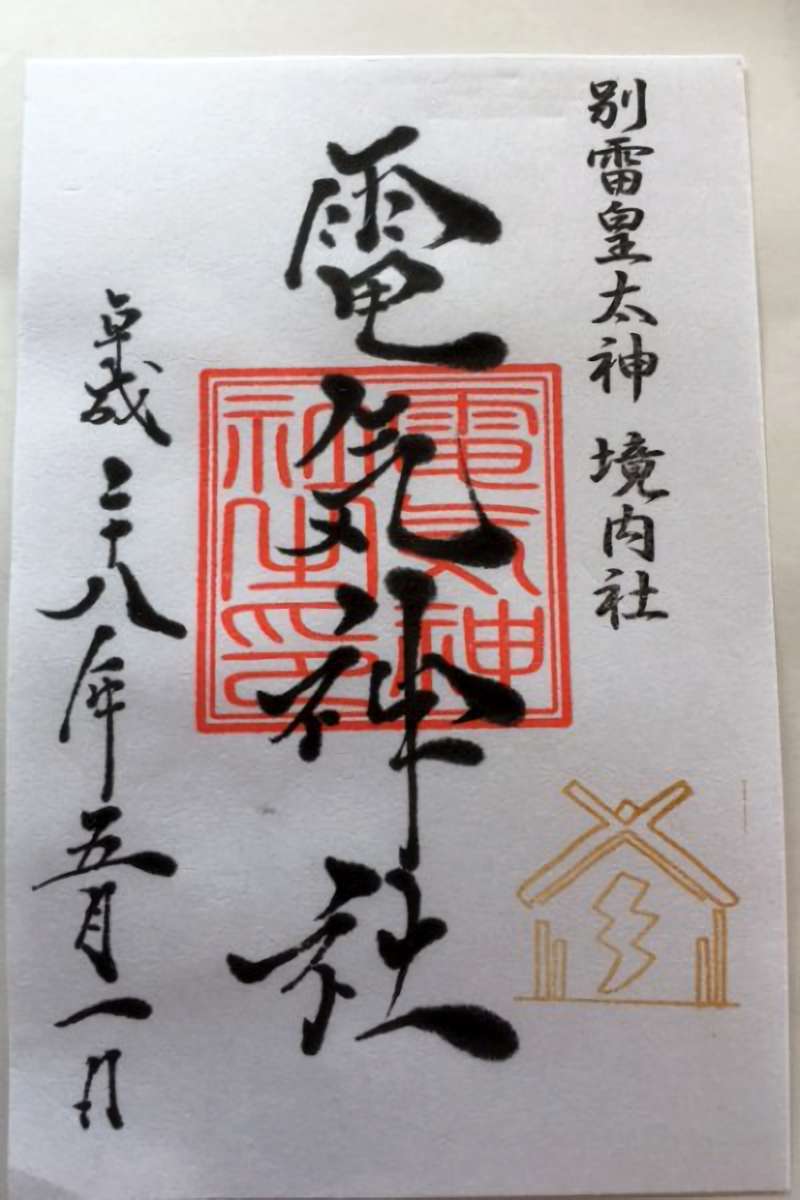 別雷皇太神 境内社
電気神社
電気神社之印
平成二十八年五月一日